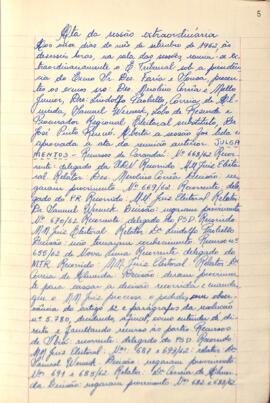 5
Ata da sessão extraordinária
Aos oito dias do mês de setembro de 1962, às
dezesseis horas, na sala das sessões, reuniu-se ex-
traordinariamente o E. Tribunal sob a presidência
do Exmo Sr. Des. Faria e Sousa, presen-
tes os exmos srs: Des. Merolino Corrêa e Mello
Junior, Drs. Lindolfo Paoliello, Corrêa de Al-
meida, Samuel Werneck, Leão de
Procurador Regional Eleitoral substituto, Dr.
José Pinto Renó. Aberta a sessão foi lida e
aprovada a ata da reunião anterior. JULGA
MENTOS - Recurso de Carandaí. Nº 668/62 Recor-
rente: delegado da Recorrido: MM Juiz Eleito-
ral. Relator: Des. Merolino Corrêa. Decisão: ne-
garam provimento. Nº 669/62. Recorrente, delegado
do PR. Recorrido: MM. Juiz Eleitoral. Relator:
Dr. Samuel Werneck. Decisão: negaram provimento.
Nº 670/62 Recorrente: delegado do PSD. Recorrido
MM Juiz Eleitoral. Relator: Dr. Lindolfo Paoliello
Decisão: não tomaram conhecimento. Recurso nº
655/62 de Nova Lima Recorrente delegado do
MTR. Recorrido: MM. Juiz Eleitoral. Relator: Dr.
Corrêa de Almeida. Decisão: deram provimen-
to para cassar a decisão recorrida e mandar
que o MM Juiz processe o pedido, com obser-
vância do artigo 12 e parágrafos da resolução
nº 5.780, decidindo afinal, como entender de di-
reito e facultando recurso às partes. Recursos
de Recorrente: delegado do PSD. Recorrido
MM Juiz Eleitoral. Nos: 687 e 699/62: relator: Dr.
Samuel Werneck. Decisão: negaram provimento.
Nos 691 e 685/62. Relator: Dr. Corrêa de Almei-
da. Decisão: negaram provimento. Nos 682 e 688/62